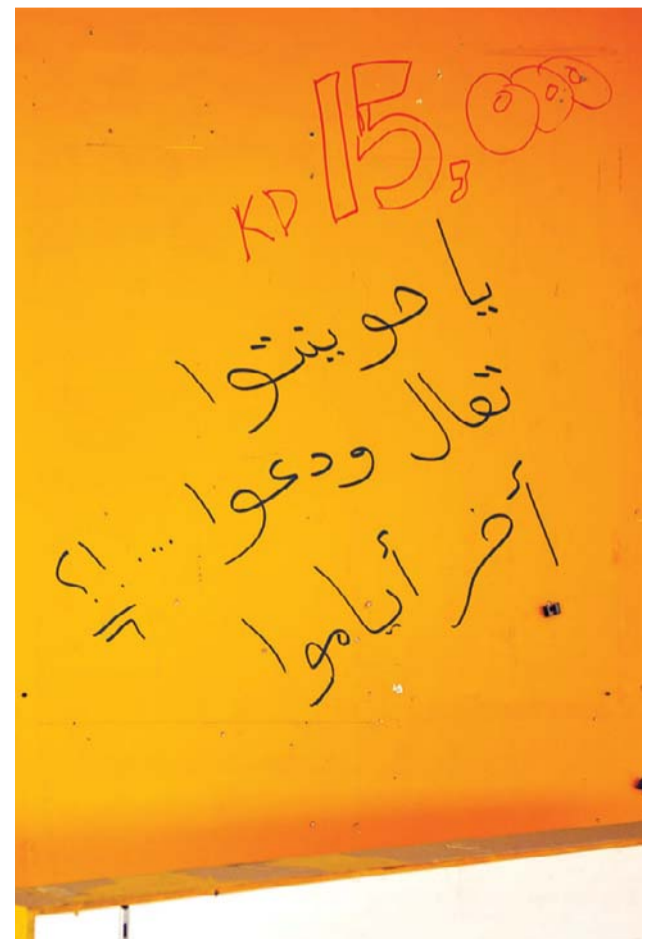 KD 15,000
يا حوينتوا
تعال ودعوا....!؟
أخر أياموا